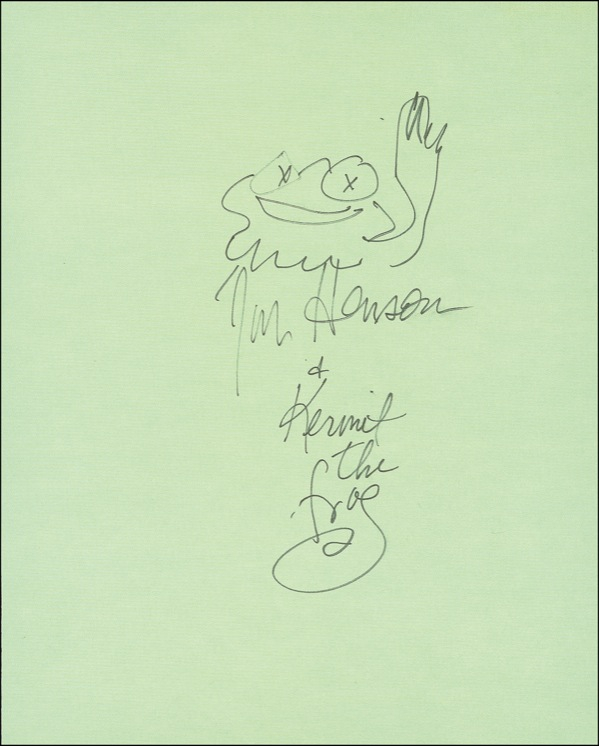 Jim Henson
&
Kermit
the
frog